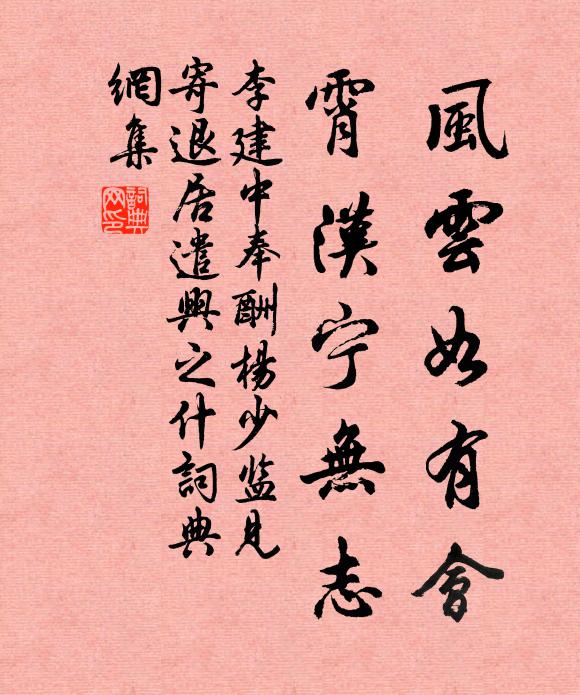 風雲如有會
霄漢宁無志
李建中奉酬楊少监見
寄退居遣興之什詞典
網集
詞典
网印